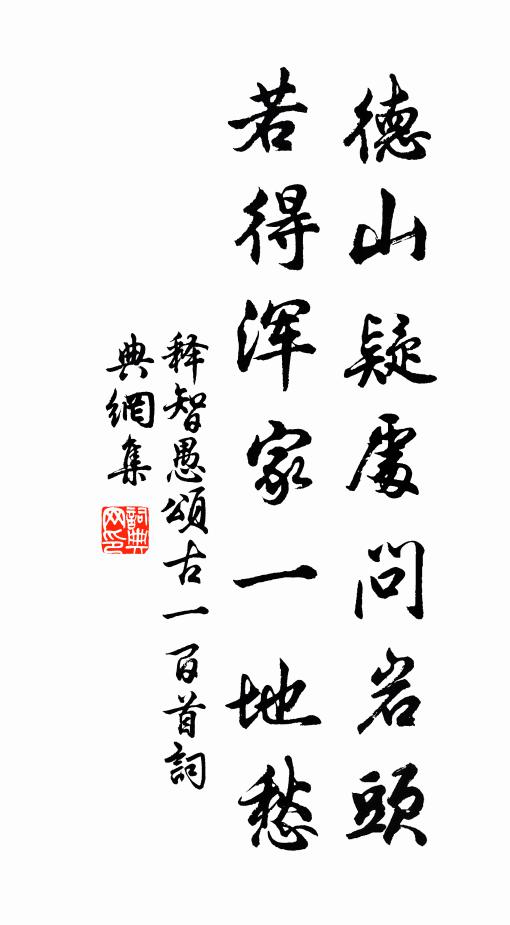 德山疑處問岩頭
若得渾家一地愁
释智愚頌古一百首詞
典網集
詞典網印